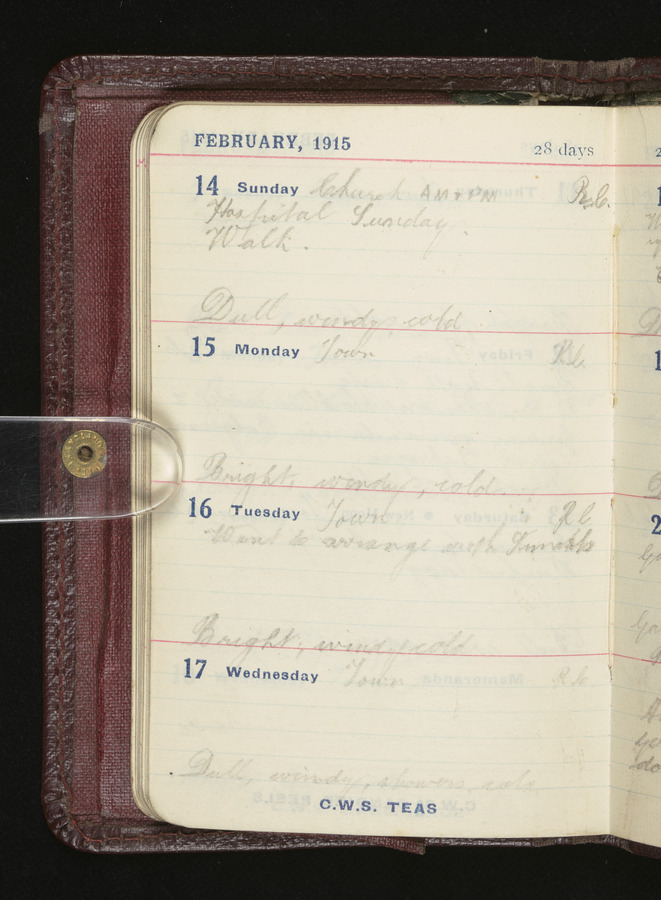 FEBRUARY, 1915 28 days
14 Sunday Church AM & PM R.C.
Hospital Sunday.
Walk.
Dull, windy, cold
15 Monday Town R.C.
Bright, windy, cold.
16 Tuesday Town R.C.
Went to arrange with
Bright, windy, cold
17 Wednesday Town R.C.
Dull, windy, showers, cold.
C.W.S. TEAS